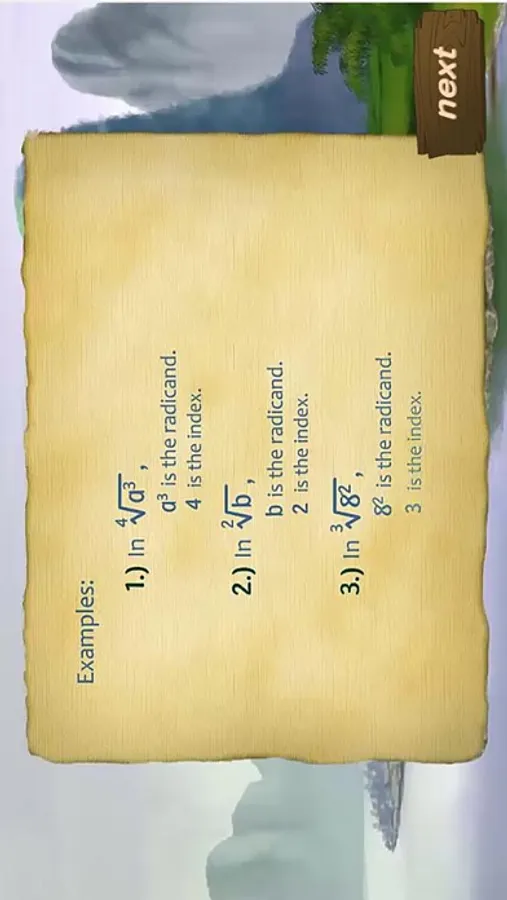 Examples:
1.) In ⁴√a³ ,
a³ is the radicand.
4 is the index.
2.) In ²√b ,
b is the radicand.
2 is the index.
3.) In ³√8² ,
8² is the radicand.
3 is the index.
next